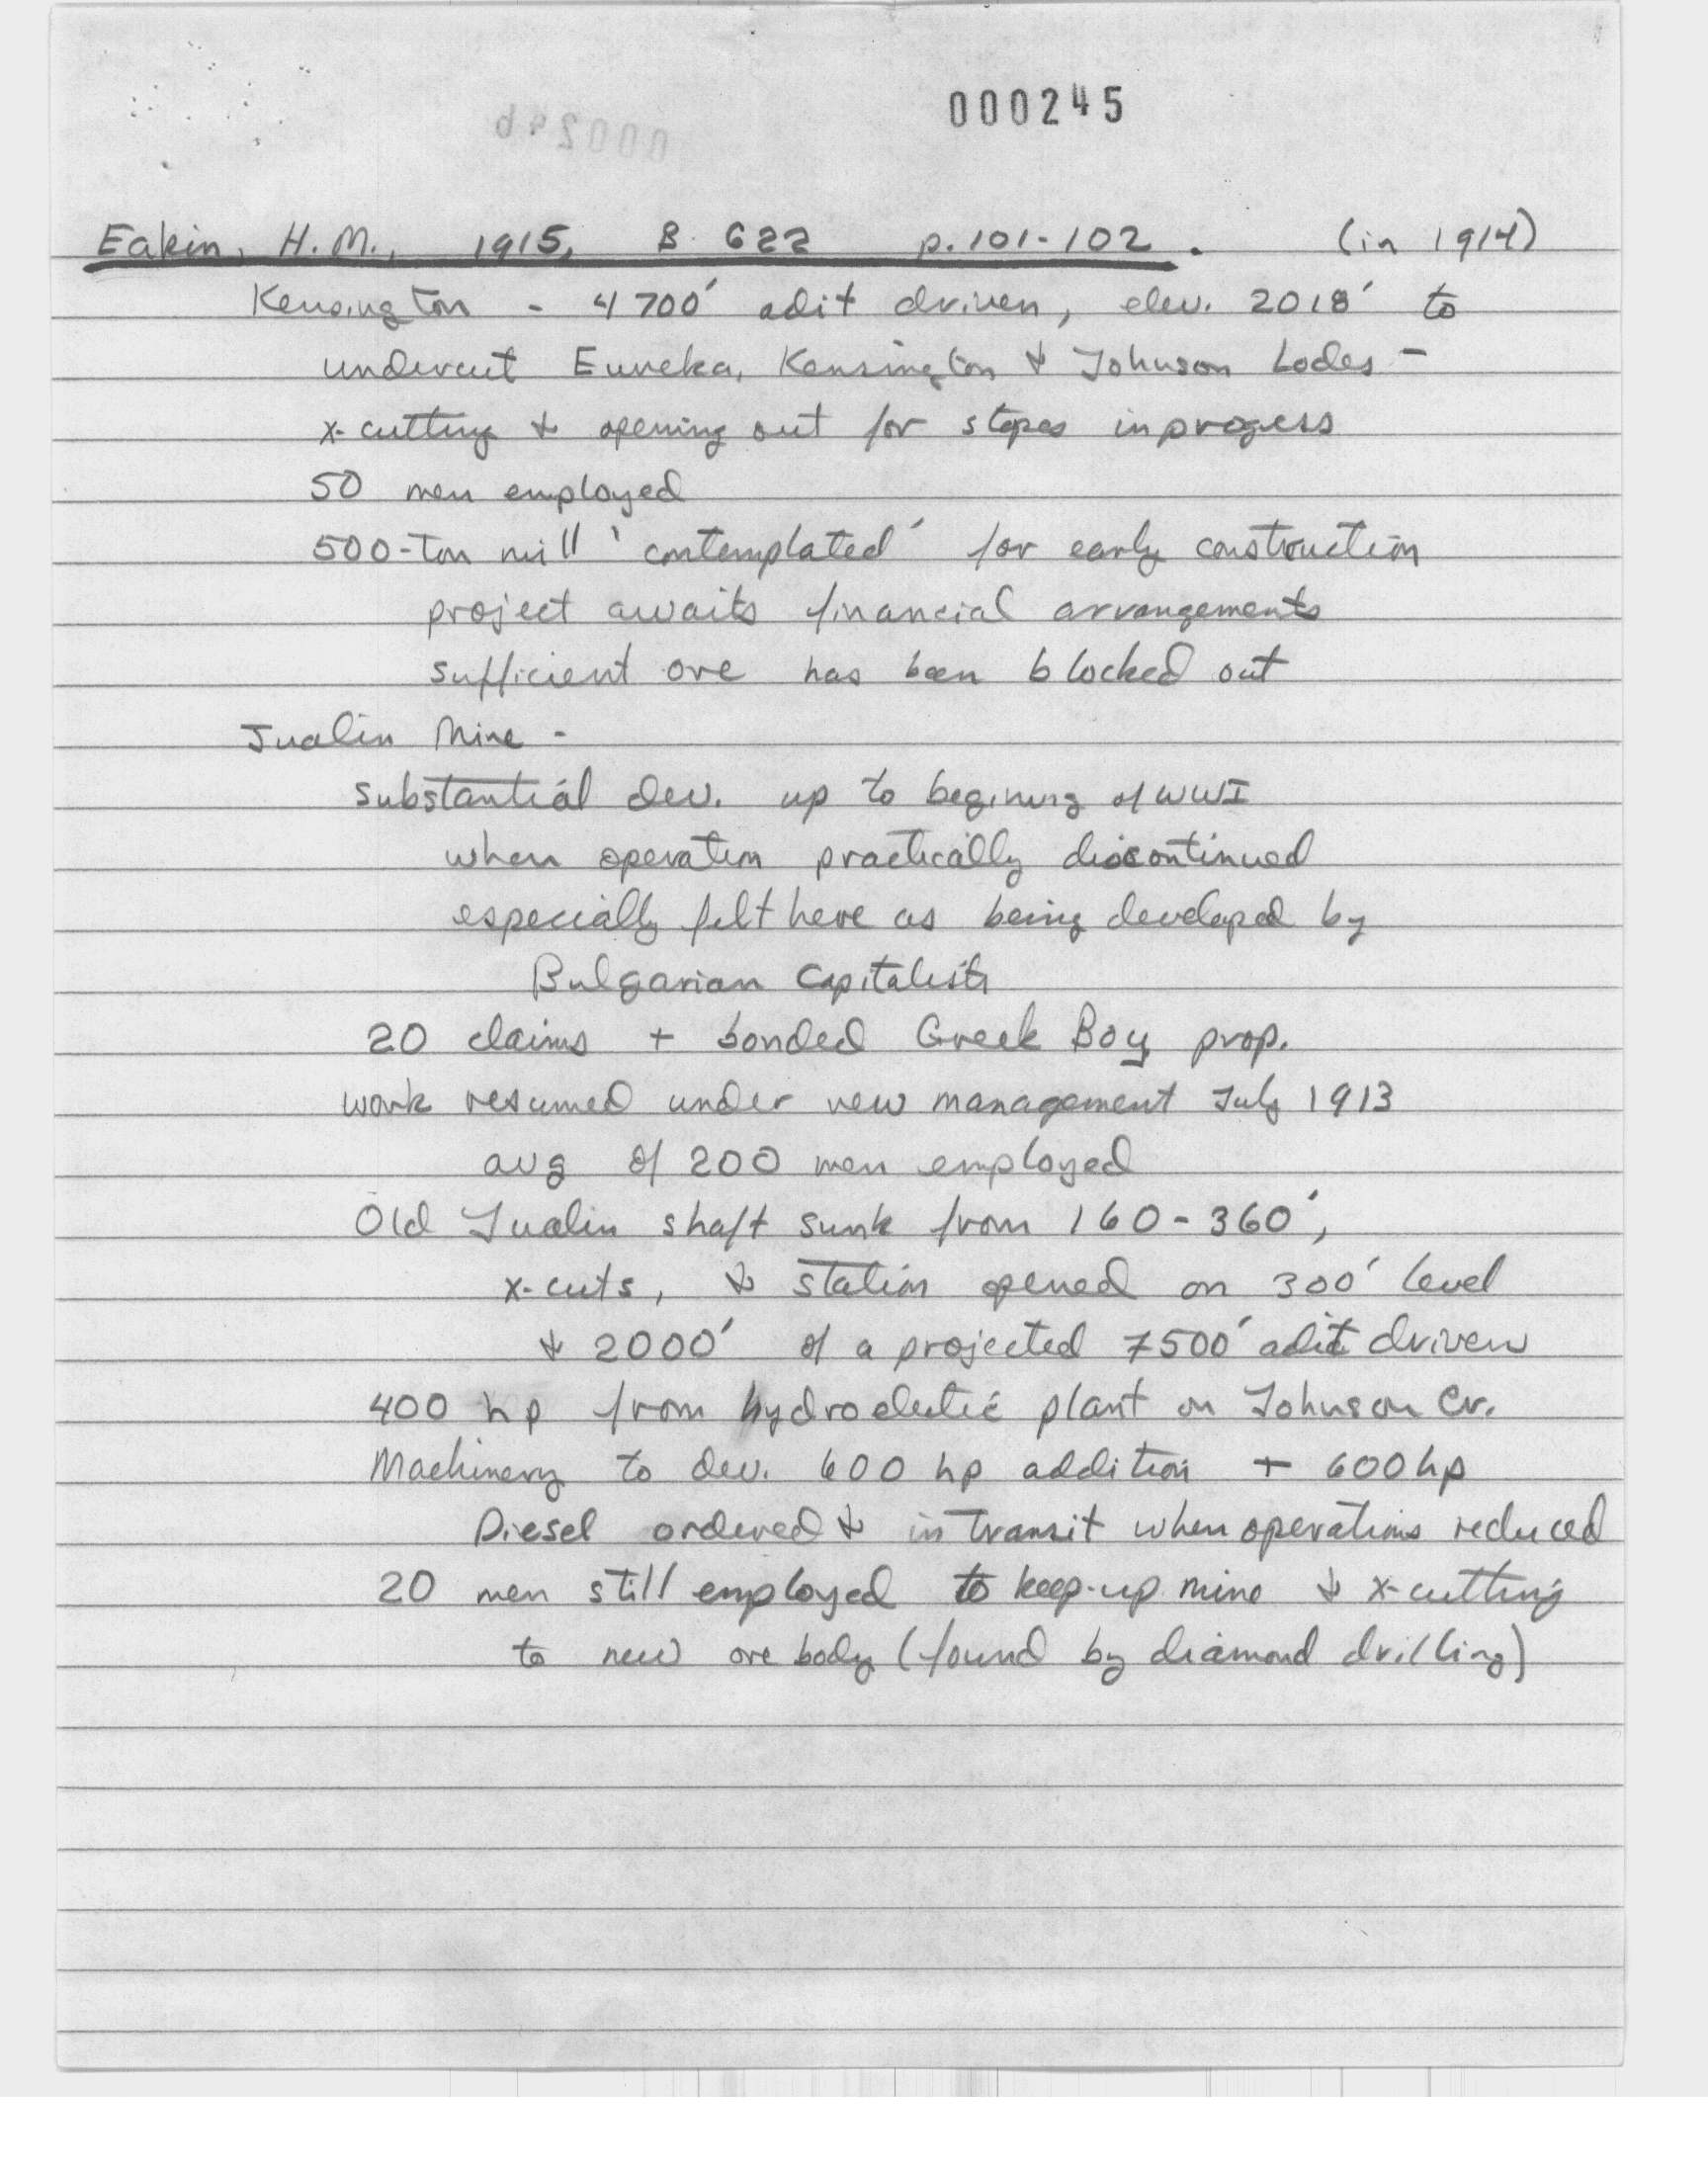 000245
Eakin, H.M., 1915, B 622 p.101-102. (in 1914)
Kensington - 4700' adit driven, elev. 2018' to
undercut Eureka, Kensington & Johnson Lodes -
x-cutting & opening out for stopes in progess
50 men employed
500-ton mill 'contemplated' for early construction
project awaits financial arrangements
sufficient ore has been blocked out
Jualin Mine -
substantial dev. up to begining of WWI
when operation practically discontinued
especially felt here as being developed by
Bulgarian Capitalists
20 claims + bonded Greek Boy prop.
work resumed under new management July 1913
avg of 200 men employed
Old Jualin shaft sunk from 160-360',
x-cuts, & station opened on 300' level
& 2000' of a projected 7500' adit driven
400 hp from hydroelectric plant on Johnson Cr.
Machinery to dev. 600 hp addition + 600 hp
Diesel ordered & in transit when operations reduced
20 men still employed to keep-up mine & x-cutting
to new ore body (found by diamond drilling)